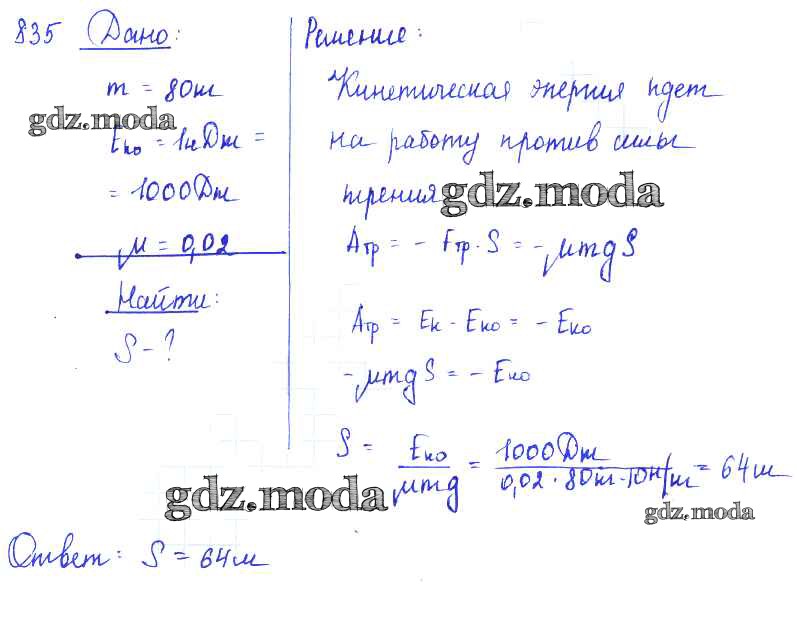 835 Дано:
m = 80кг
Eко = 1кДж =
= 1000Дж
μ = 0,02
Найти:
S - ?
Решение:
Кинетическая энергия идет
на работу против силы
трения
Aтр = - Fтр · S = - μmgS
Aтр = Eк - Eко = - Eко
- μmgS = - Eко
S = Eко / μmg = 1000Дж / 0,02 · 80кг · 10Н/кг = 64м
Ответ: S = 64м
gdz.moda
gdz.moda
gdz.moda
gdz.moda